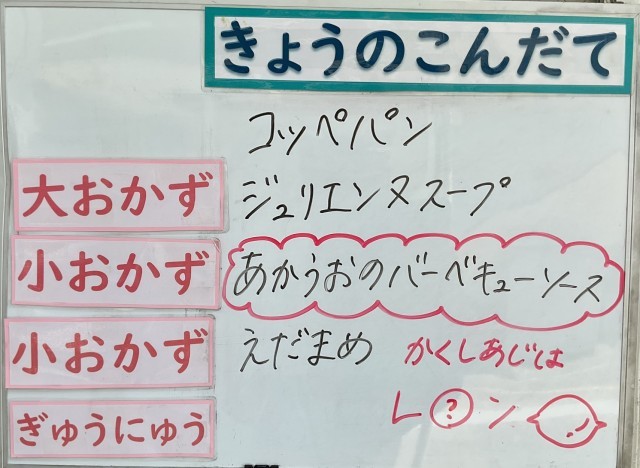 きょうのこんだて
コッペパン
大おかず ジュリエンヌスープ
小おかず あかうおのバーベキューソース
小おかず えだまめ かくしあじは
ぎゅうにゅう レ?ン